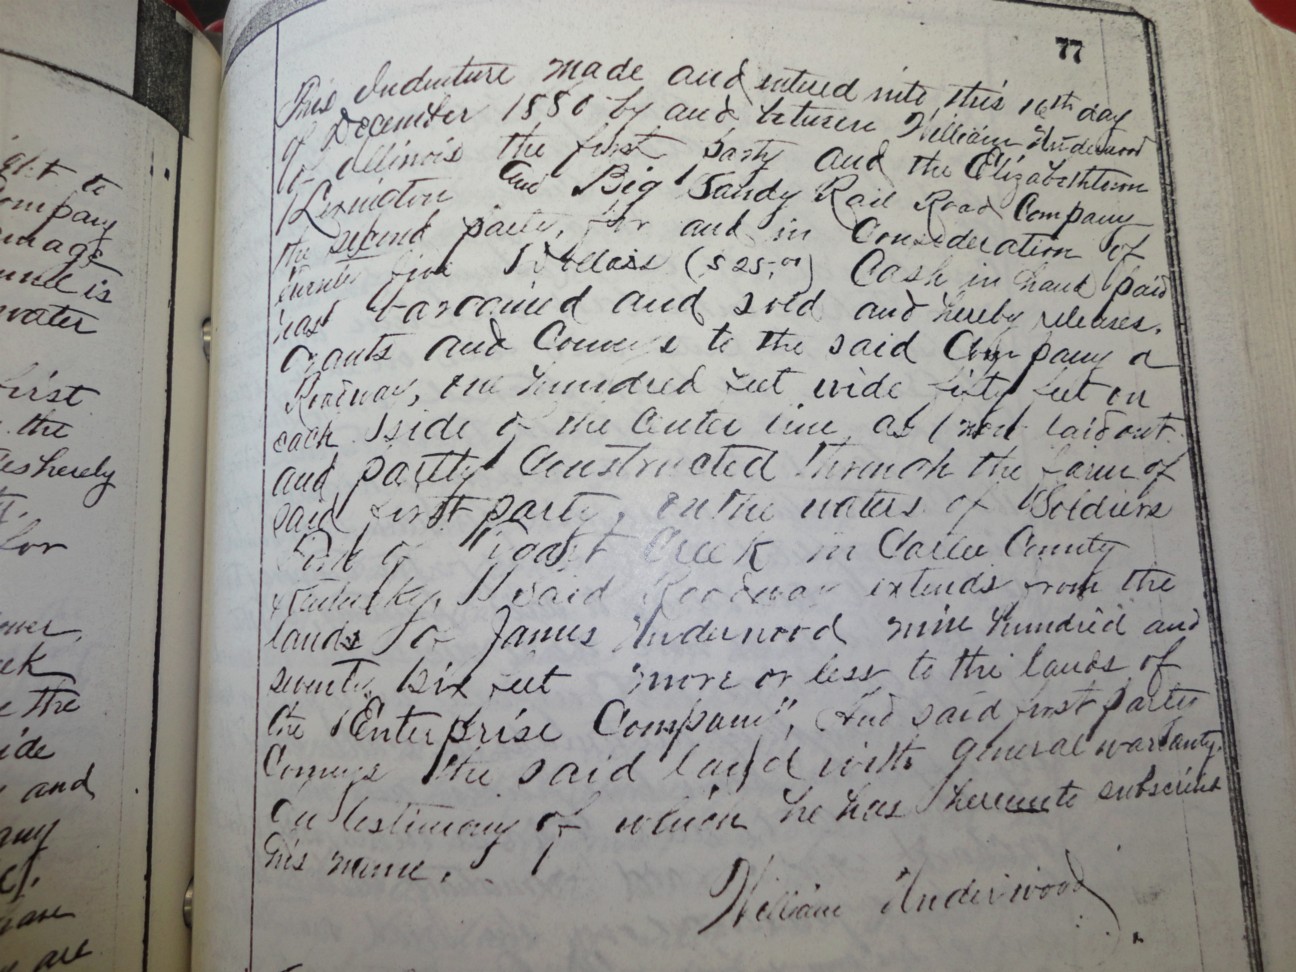 77
This Indenture made and entered into this 16th day
of December 1880 by and between William Underwood
of Illinois the first party and the Elizabethtown
Lexington and Big Sandy Rail Road Company
the second party, for and in Consideration of
twenty five Dollars ($25,00) Cash in hand paid
has bargained and sold and hereby releases,
Grants and Conveys to the said Company a
Roadway, one hundred feet wide fifty feet on
each side of the Center line, as now laid out
and partly Constructed through the farm of
said first party, on the waters of Soldiers
Fork of Creek in Carter County
Kentucky. said Roadway extends from the
lands of James Underwood nine hundred and
seventy six feet more or less to the lands of
the "Enterprise Company", and said first party
Conveys the said land with general warranty.
In testimony of which he has hereunto subscribed
his name.
William Underwood
ght to
Company
umage
water
first
the
hereby
for
ower,
eek
the
ide
and
any
are
are